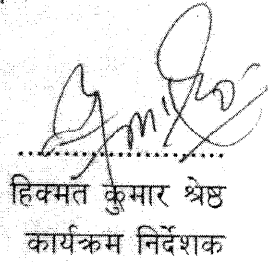 हिक्मत कुमार श्रेष्ठ
कार्यक्रम निर्देशक